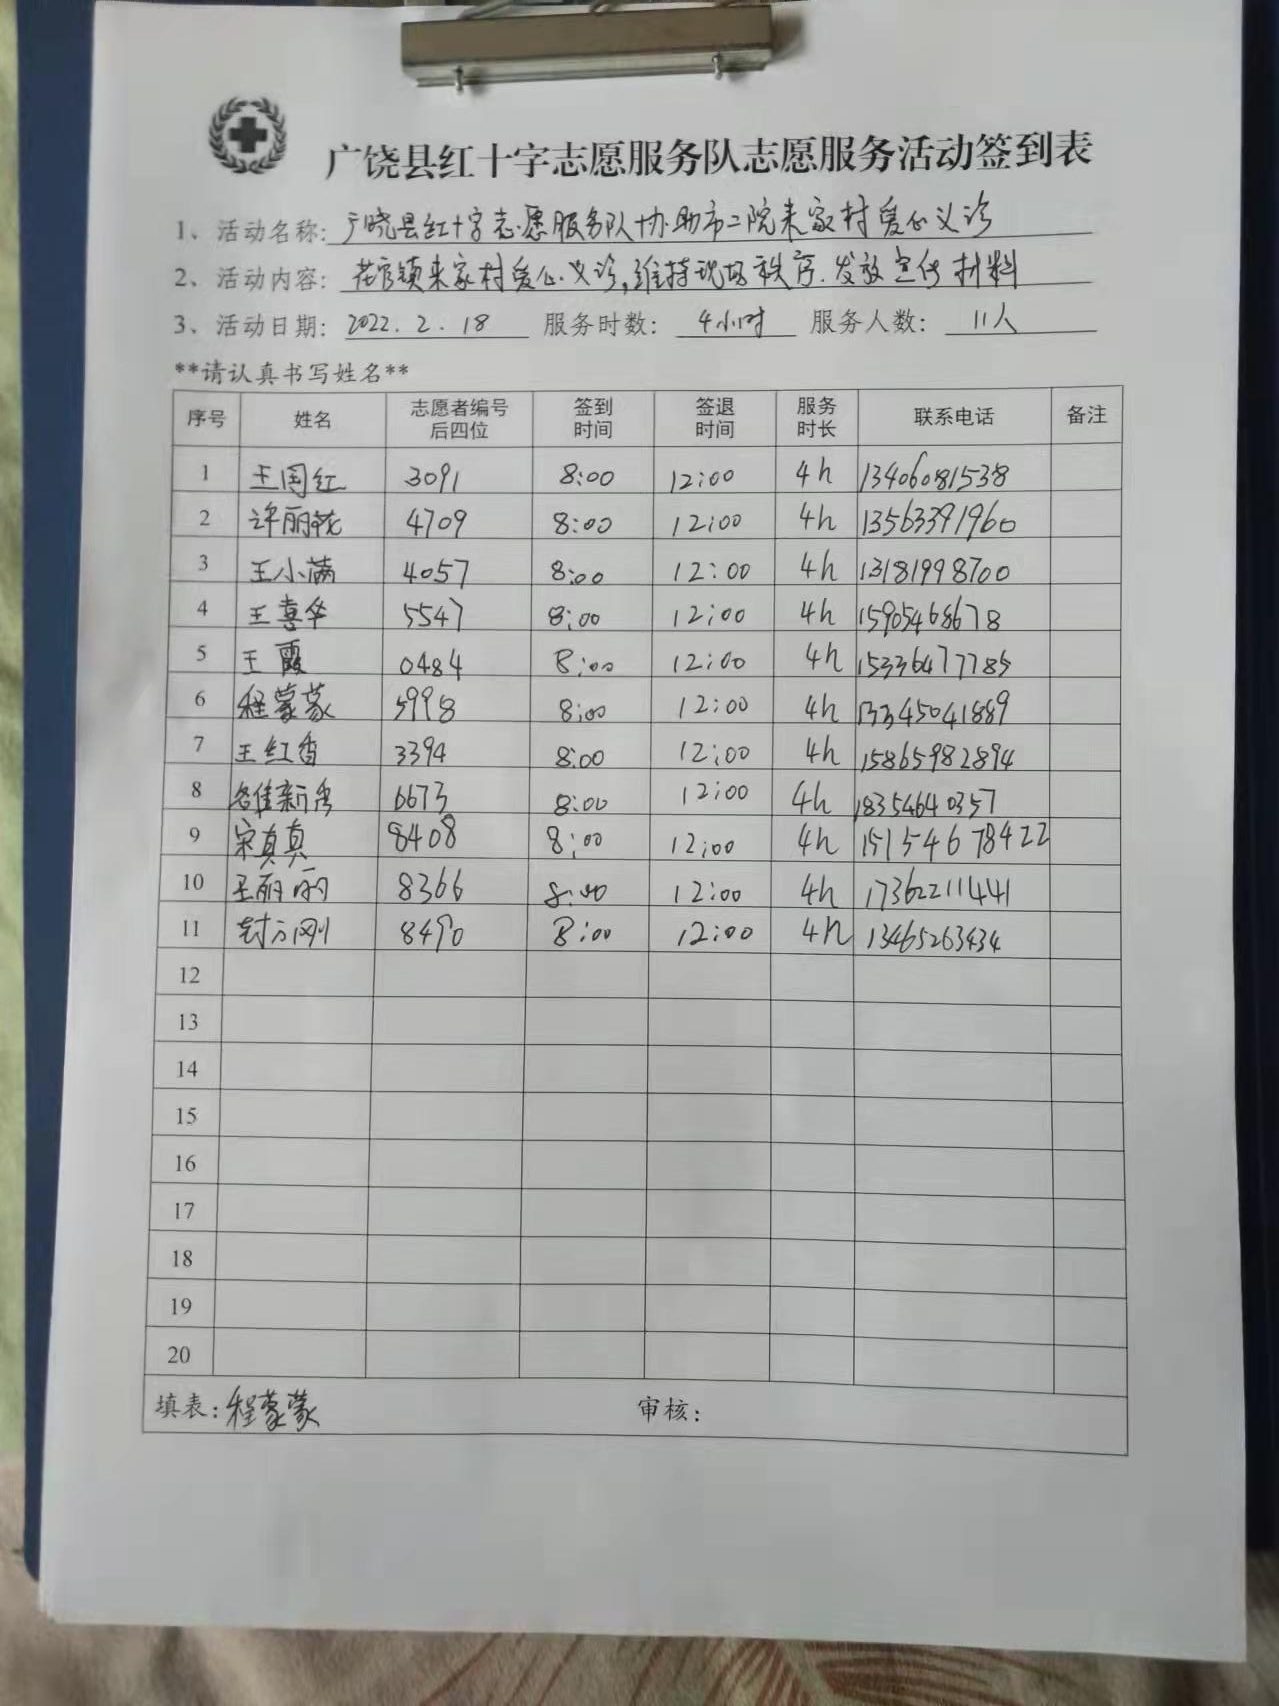 广饶县红十字志愿服务队志愿服务活动签到表
1、活动名称: 广饶县红十字志愿服务队协助市二院来家村爱心义诊
2、活动内容: 花官镇来家村爱心义诊,维持现场秩序.发放宣传材料
3、活动日期: 2022.2.18 服务时数: 4小时 服务人数: 11人
**请认真书写姓名**
序号 姓名 志愿者编号后四位 签到时间 签退时间 服务时长 联系电话 备注
1 王国红 3091 8:00 12:00 4h 13406081538
2 许丽花 4709 8:00 12:00 4h 13563391960
3 王小满 4057 8:00 12:00 4h 13181998700
4 王喜华 5547 8:00 12:00 4h 15905468678
5 王霞 0484 8:00 12:00 4h 15336477785
6 程蒙蒙 5998 8:00 12:00 4h 13345041889
7 王红香 3394 8:00 12:00 4h 15865982894
8 6673 8:00 12:00 4h 18354640357
9 宋真真 8408 8:00 12:00 4h 15154678422
10 王丽丽 8366 8:00 12:00 4h 17362211441
11 封方刚 8490 8:00 12:00 4h 13465263434
12
13
14
15
16
17
18
19
20
填表: 程蒙蒙 审核: